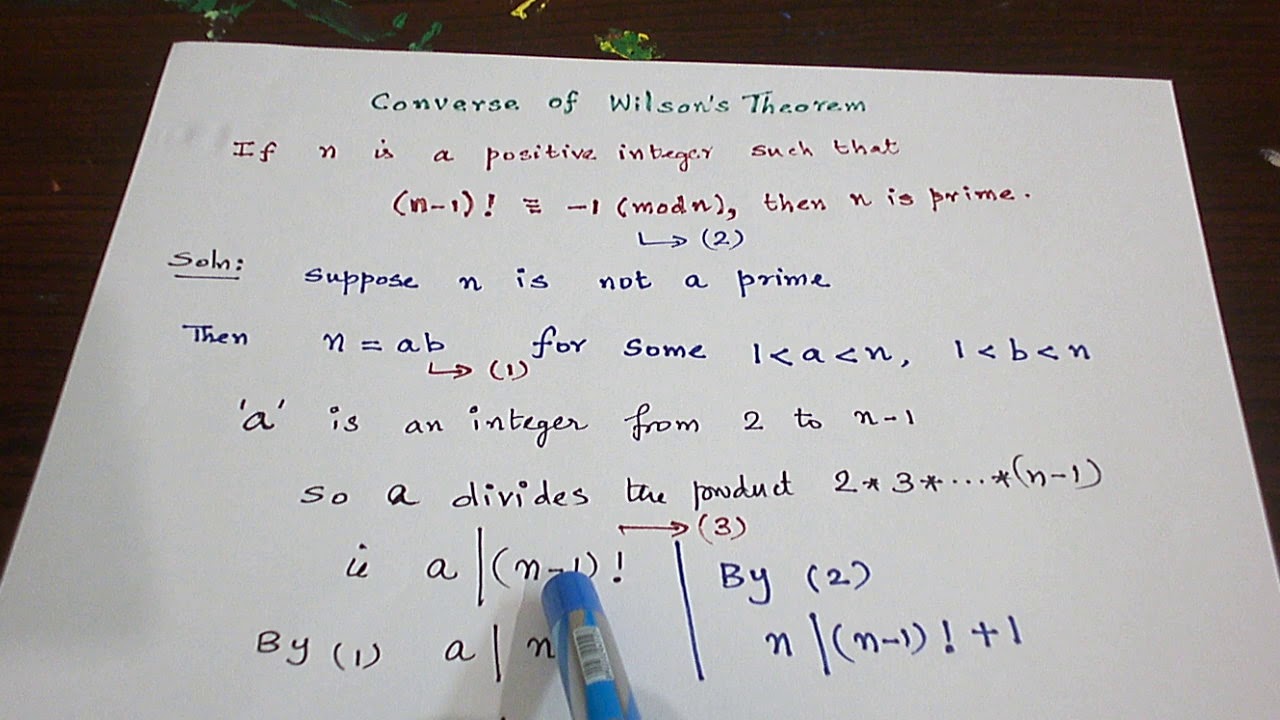 Converse of Wilson's Theorem
If n is a positive integer such that
(n-1)! ≡ -1 (mod n), then n is prime.
↳ (2)
Soln: Suppose n is not a prime
Then n = ab for some 1<a<n, 1<b<n
↳ (1)
'a' is an integer from 2 to n-1
So a divides the product 2*3*...*(n-1)
⟶ (3)
ie a | (n-1)!
By (1) a | n
By (2)
n | (n-1)! + 1